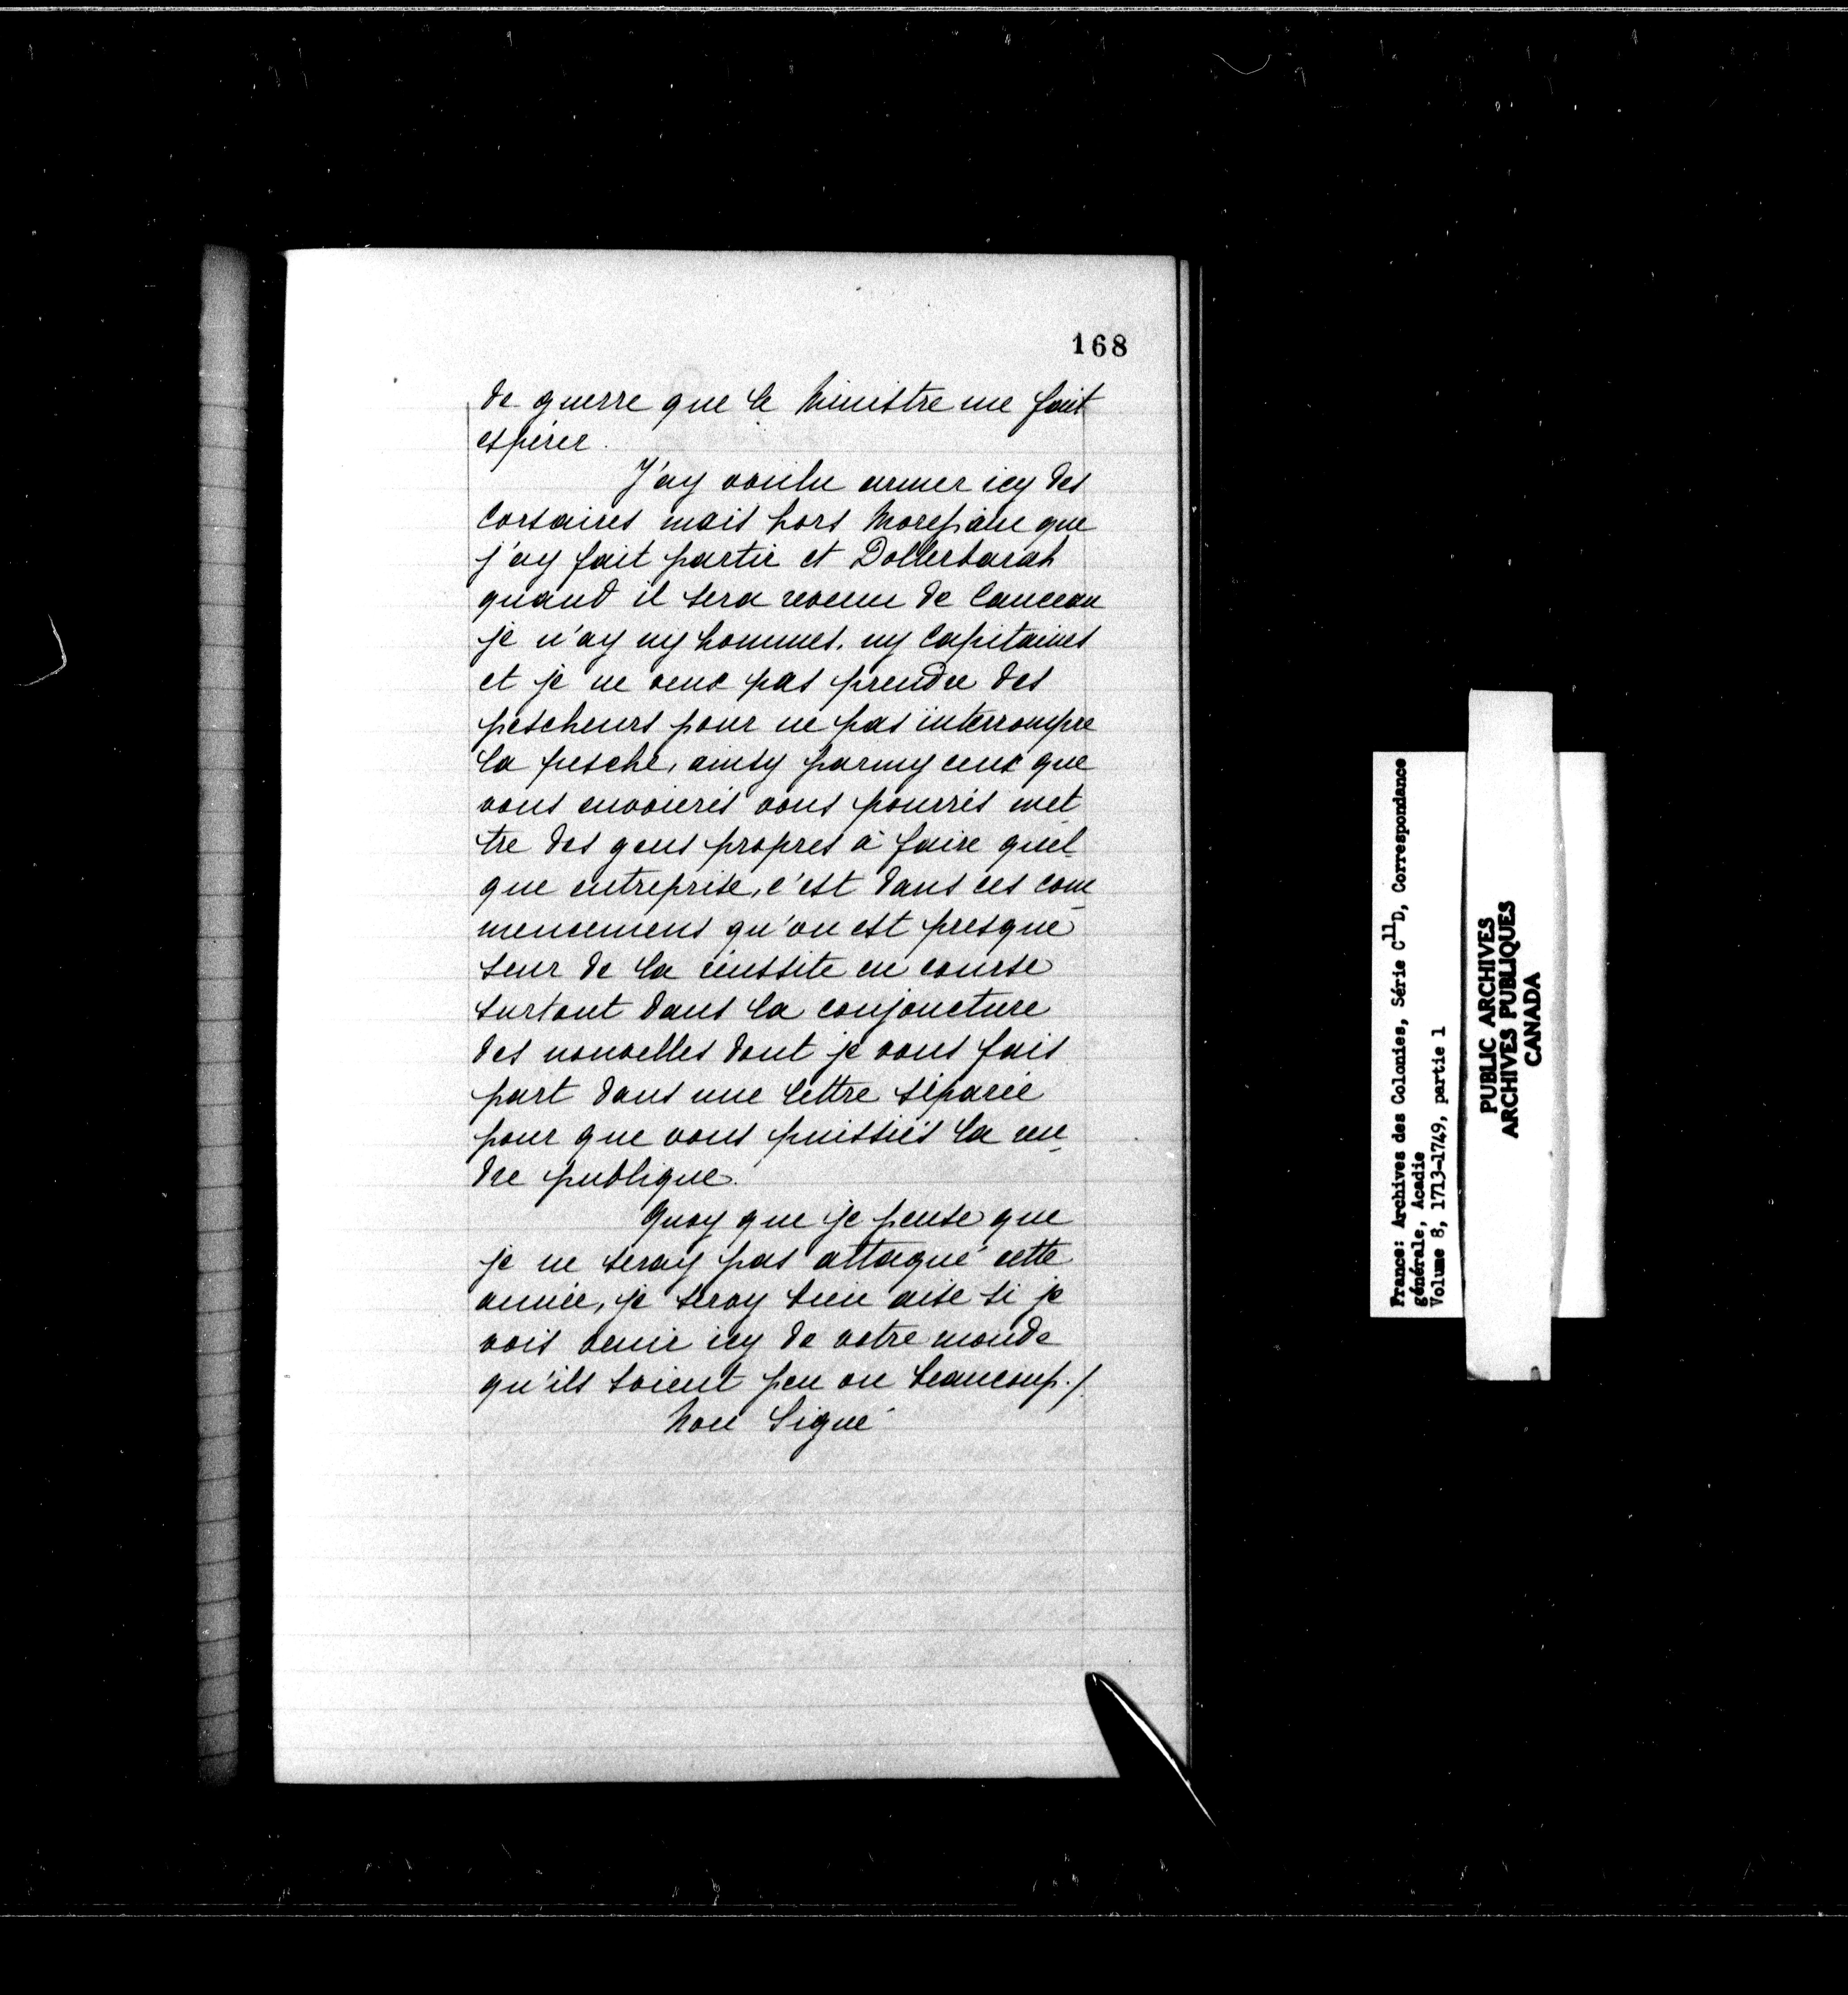 168
de guerre que le Ministre me fait
espérer.
J'ay voulu armer icy des
Corsaires mais hors Morepain que
j'ay fait partir et Dollerbarah
quand il sera revenu de Canceau
je n'ay ny hommes, ny Capitaines
et je ne veux pas prendre des
pescheurs pour ne pas interrompre
la pesche, ainsy parmy ceux que
vous envoierés vous pourrés met-
tre des gens propres à faire quel-
que entreprise, c'est dans ces com-
mencemens qu'on est presque
seur de la réussite en course
surtout dans la conjoncture
des nouvelles dont je vous fais
part dans une lettre séparée
pour que vous puissiés la ren-
dre publique.
Quoy que je pense que
je ne seray pas attaqué cette
année, je seray bien aise si je
vois venir icy de votre monde
qu'ils soient peu ou beaucoup./.
Non Signé
France: Archives des Colonies, Série C11D, Correspondance
générale, Acadie
Volume 8, 1713-1749, partie 1
PUBLIC ARCHIVES
ARCHIVES PUBLIQUES
CANADA